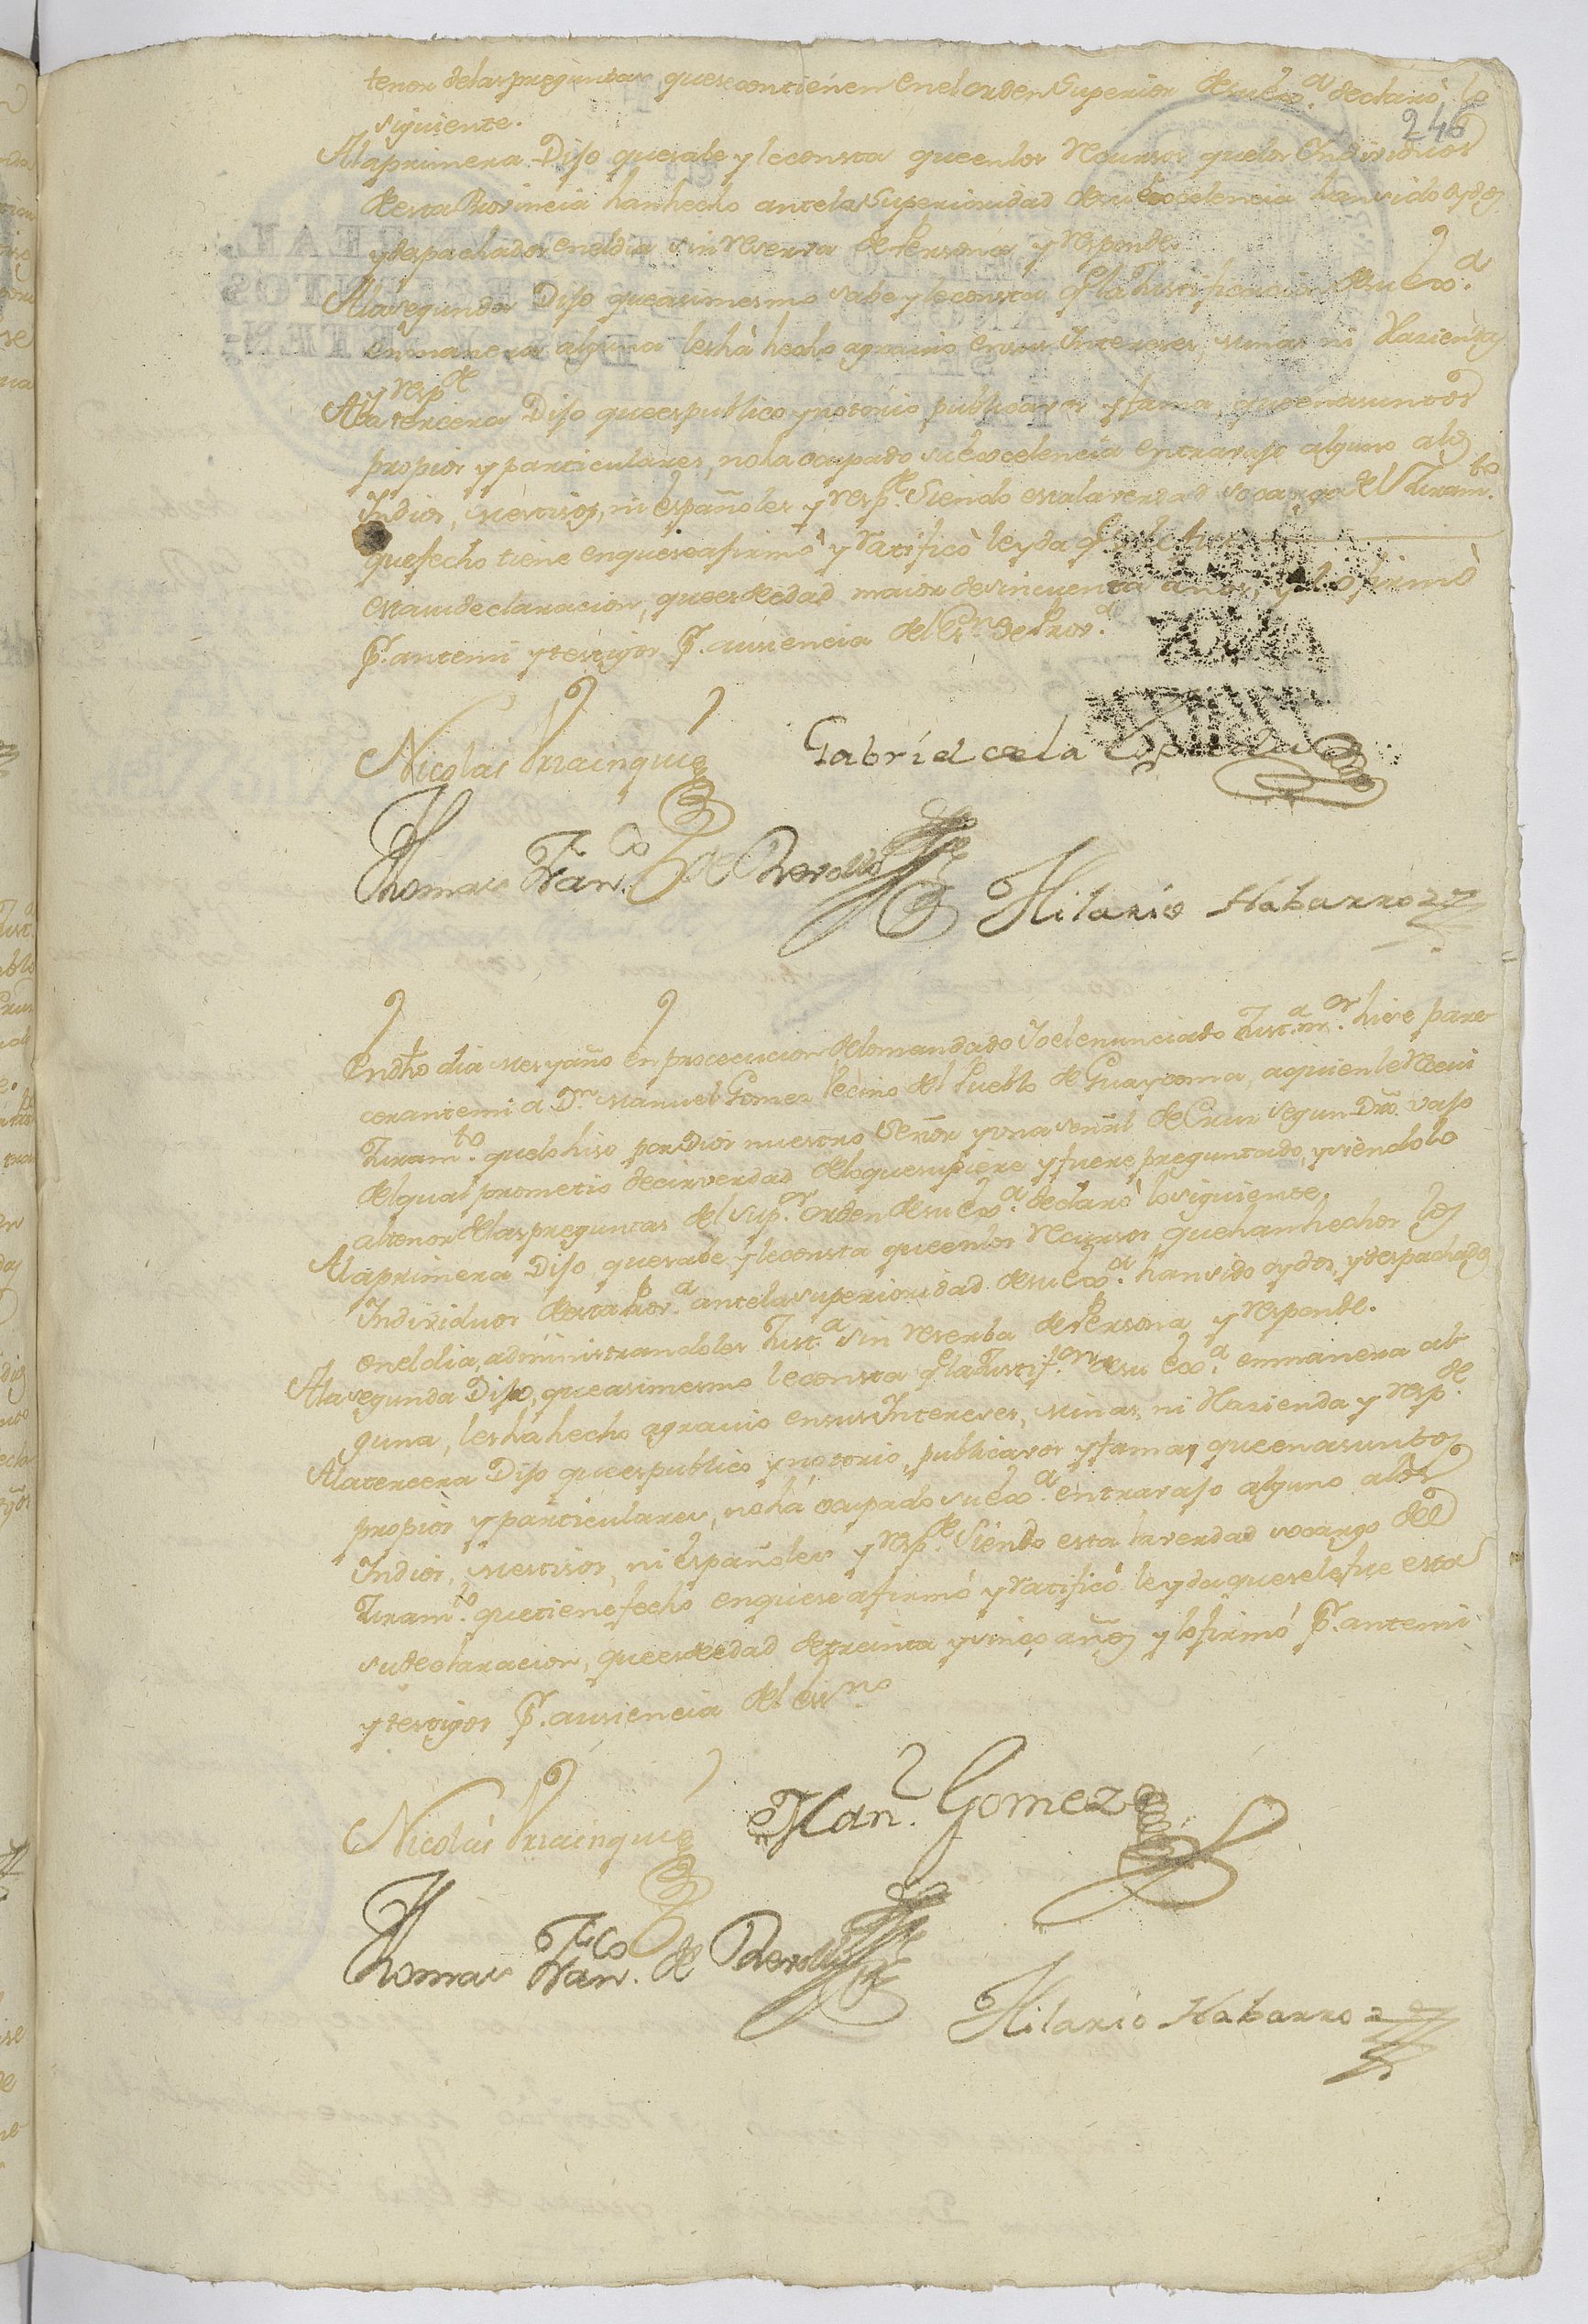 tenor delas preguntas que se contienen en el orden Superior de su Exa. declaró lo
246
siguiente.
Ala primera Dijo que sabe y le consta que en los Recursos que los Individuos
de esta Provincia han hecho ante la Superioridad de su Excelencia han sido oydos
y despachados en el dia sin reserva de Persona y responde
Ala segunda Dijo que asimesmo sabe y le consta q la Justificacion de su Exa.
en manera alguna les há hecho agravio en sus Intereses, minas ni Hazienda
y respde
Ala tercera Dijo que es publico y notorio, publica vos y fama, que en asuntos
propios y particulares, no ha ocupado su Excelencia en travajo alguno alos
Indios, mestisos, ni Españoles y respde. Siendo esta la verdad so cargo del Juramto.
que fecho tiene en que se afirmó y ratificó leyda q
esta su declaracion, que es de edad maior de sincuenta años, y lo firmó
Pr. ante mi y testigos Pr. ausiencia del
Nicolas
Gabriel de la
Thomas Franco de
Hilario Nabarro
En dho dia mes y año en prosecucion de lo mandado Yo el enunciado Justa. mor. hise pare
cer ante mi a Dn. Manuel Gomez Vecino del Pueblo de Guaycoma, a quien le Recivi
Juramto. que lo hiso por Dios nuestro Señor y una señal de Crus segun Dro. vajo
del qual prometio decir verdad delo que supiere y fuere preguntado, y siendolo
al tenor delas preguntas del supor. orden de su Exa. declaró lo siguiente.
Ala primera Dijo que sabe y le consta que en los Recursos que han hechos los
Individuos de esta Prova. ante la superioridad de su Exa. han sido oydos, y despachados
en el dia, administrandoles Justa. sin reserba de Persona y responde.
Ala segunda Dijo, que asimesmo le consta q la Justifon. de su Exa. en manera al
guna, les ha hecho agravio en sus Intereses, minas, ni Hazienda y respde.
Ala tercera Dijo que es publico y notorio, publica vos y fama, que en asuntos
propios y particulares, no há ocupado su Exa. en travajo alguno alos
Indios, mestisos, ni Españoles y respde. Siendo esta la verdad so cargo del
Juramto. que tiene fecho en que se afirmó y ratificó leyda que se le fue esta
su declaracion, que es de edad de treinta y sinco años y lo firmó Pr. ante mi
y testigos Pr. ausiencia del esno
Nicolás
Man. Gomez
Thomas Franco. de
Hilario Nabarro